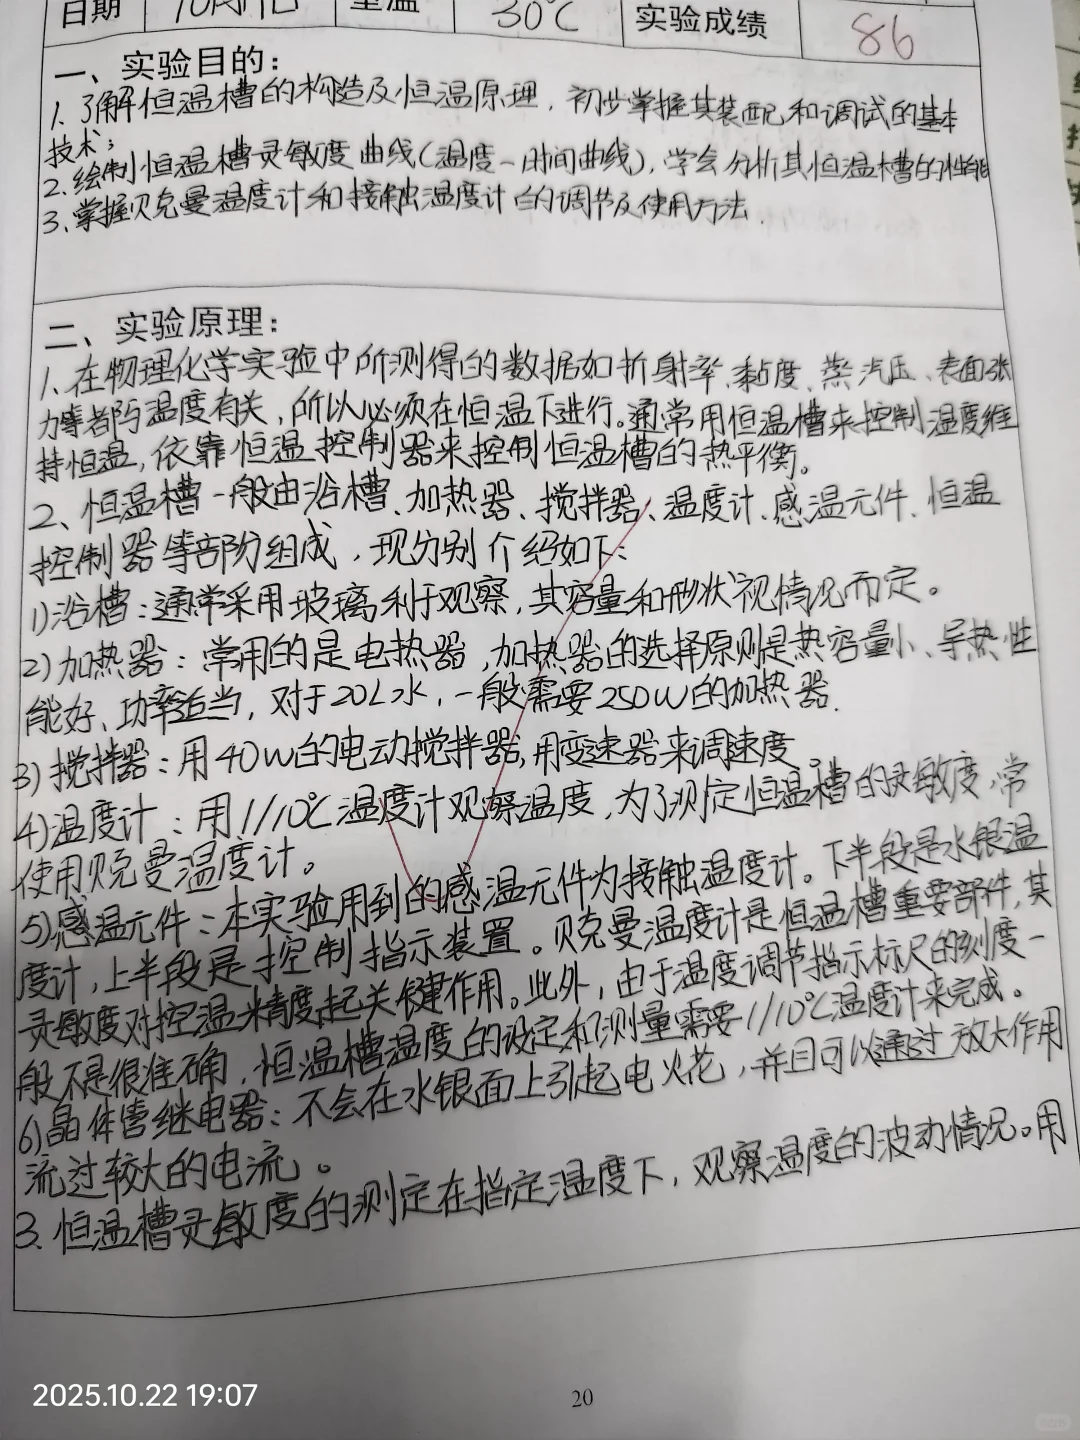 日期 室温 30℃ 实验成绩 86
一、实验目的:
1.了解恒温槽的构造及恒温原理，初步掌握其装配和调试的基本
技术；
2.绘制恒温槽灵敏度曲线(温度-时间曲线)，学会分析其恒温槽的性能
3.掌握贝克曼温度计和接触温度计的调节及使用方法.
二、实验原理:
1.在物理化学实验中所测得的数据如折射率、黏度、蒸汽压、表面张
力等都与温度有关，所以必须在恒温下进行。通常用恒温槽来控制温度维
持恒温，依靠恒温控制器来控制恒温槽的热平衡。
2、恒温槽一般由浴槽、加热器、搅拌器、温度计、感温元件、恒温
控制器等部分组成，现分别介绍如下:
1)浴槽:通常采用玻璃利于观察，其容量和形状视情况而定。
2)加热器:常用的是电热器,加热器的选择原则是热容量小、导热性
能好、功率适当，对于20L水，一般需要250W的加热器.
3)搅拌器:用40W的电动搅拌器,用变速器来调速度。
4)温度计:用1/10℃温度计观察温度，为了测定恒温槽的灵敏度，常
使用贝克曼温度计。
5)感温元件:本实验用到的感温元件为接触温度计。下半段是水银温
度计，上半段是控制指示装置。贝克曼温度计是恒温槽重要部件,其
灵敏度对控温精度起关键作用。此外，由于温度调节指示标尺的刻度一
般不是很准确，恒温槽温度的设定和测量需要1/10℃温度计来完成。
6)晶体管继电器:不会在水银面上引起电火花，并且可以通过放大作用
流过较大的电流。
3.恒温槽灵敏度的测定在指定温度下，观察温度的波动情况。用
2025.10.22 19:07
20